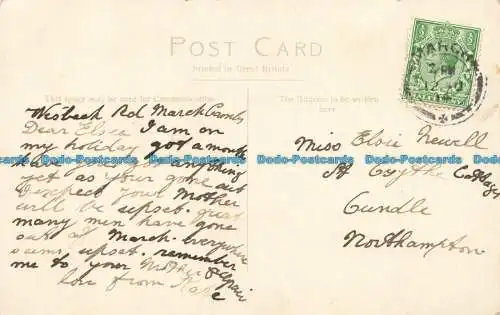 POST CARD
Printed in Great Britain
This space may be used for Communication
The Address to be written
here
MARCH
Wisbech Rd March Cambs
Dear Elsie I am on
my holiday got a month
have anything
yet as your gone out
I expect your Mother
will be upset. great
many men have gone
out at March. everywhere
seems upset. remember
me to your Mother &
love from
Miss Elsie Newell
St Cottage
Oundle
Northampton
Bodo-Postcards Bodo-Postcards Bodo-Postcards Bodo-Postcards